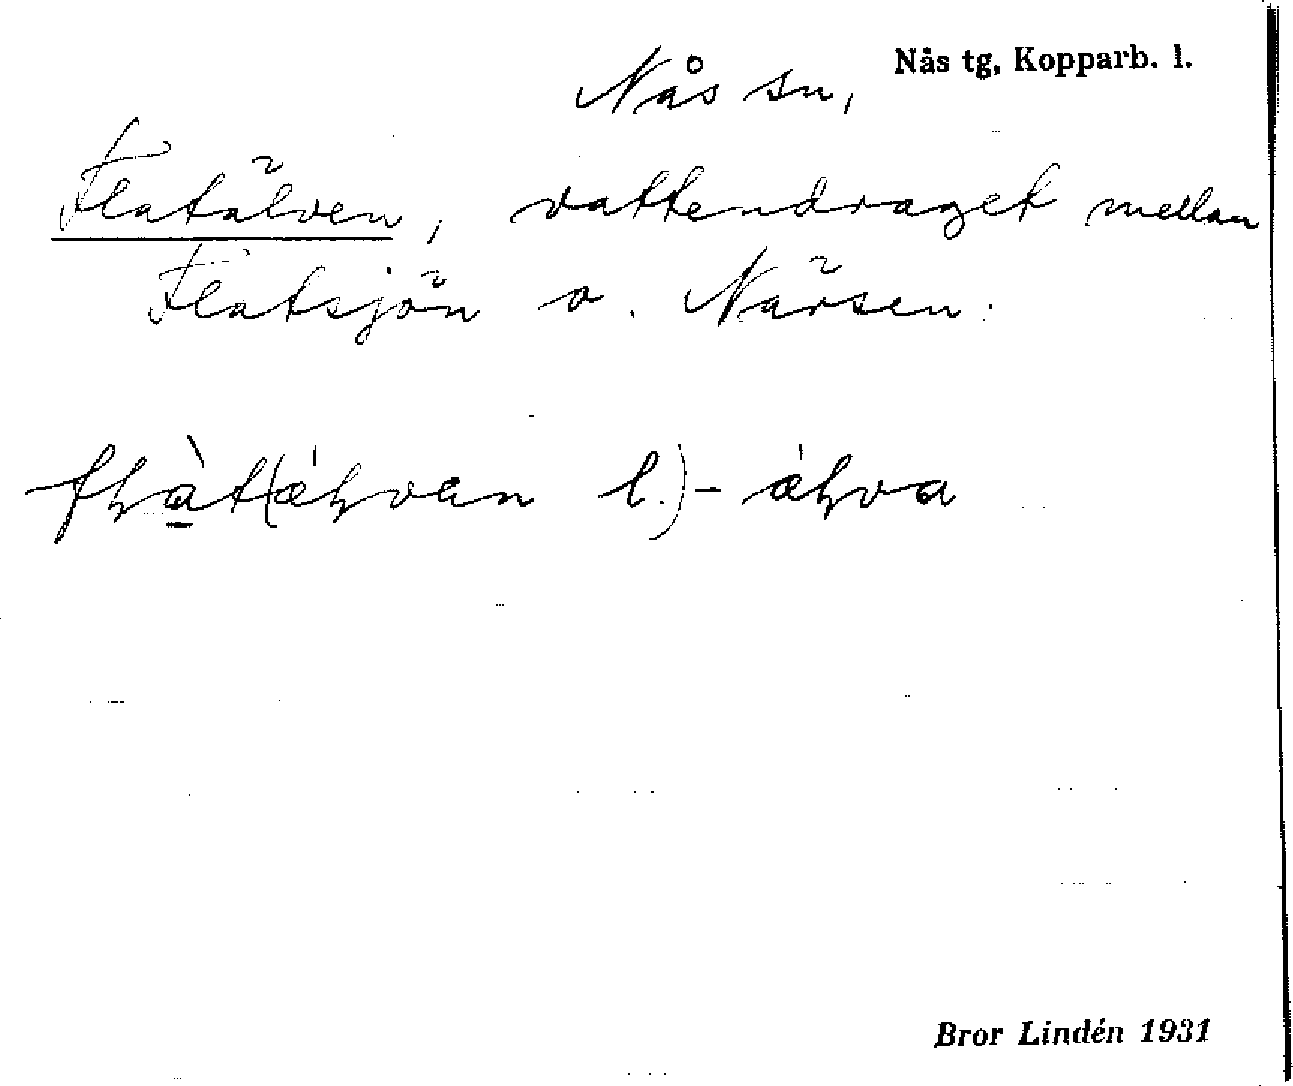 Nås tg, Kopparb. l.
Nås sn,
Flatälven, vattendraget mellan
Flatsjön o. Närsen.
l.)-
Bror Lindén 1931